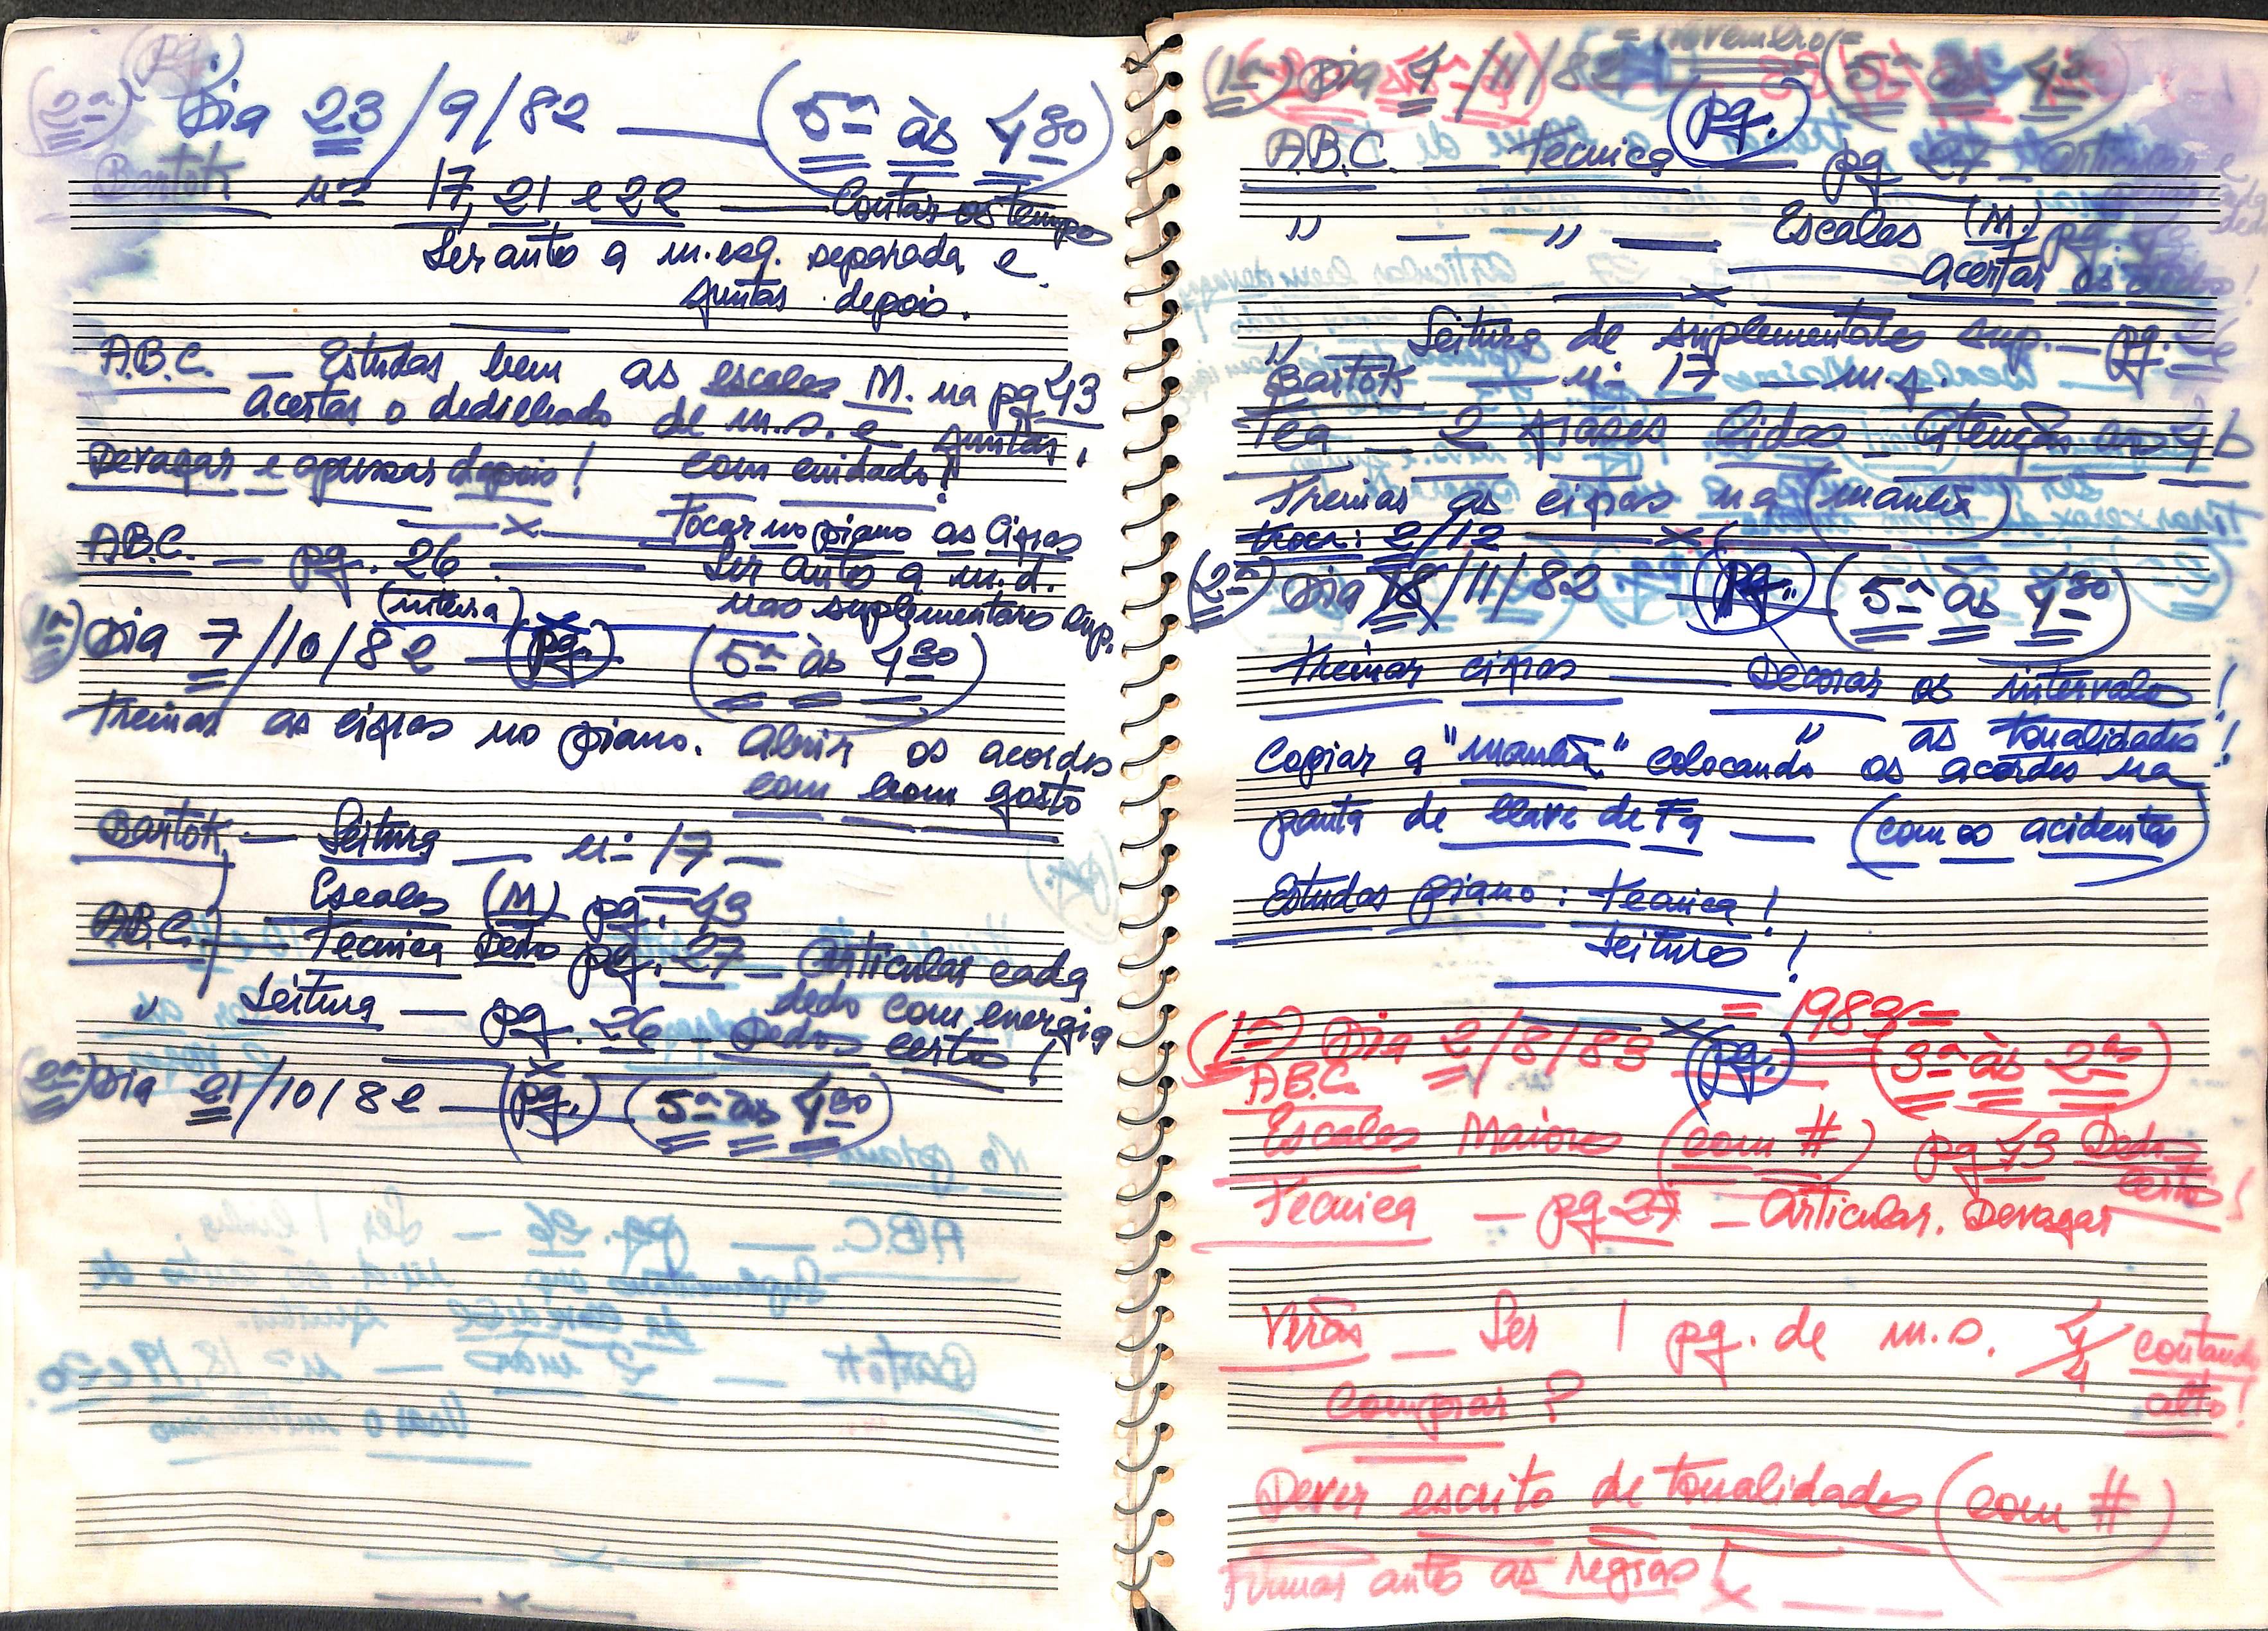 (pg.)
(2ª) Dia 23/9/82 — (5ª às 4 30)
Bartok nº 17, 21 e 22 — Contar os tempos
Ler auto a m.esq. separada e
juntas depois.
A.B.C. — Estudar bem as escalas M. na pg 43
Acertar o dedilhado de m.s. e juntas,
Devagar e apressar depois! com cuidado!
— x — Tocar no piano as cifras
A.B.C. — pg. 26 — Ler auto a m.d.
(inteira) nao suplementário sup.
(1ª) Dia 7/10/82 — (pg.) (5ª às 4 30)
Treinar as cifras no piano. Abrir os acordes
com bom gosto
Bartok — Leitura — nº 17 —
Escalas (M) pg. 43
A.B.C. — Tecnica Dedo pg. 27 — Articular cada
dedo com energia
" Leitura — pg. 26 — Dedos certos!
— x —
(2ª) Dia 21/10/82 — (pg.) (5ª às 4 30)
— x —
= novembro =
(1ª) Dia 4/11/82 (pg.) (5ª às 4 30)
A.B.C. — Tecnica — pg 27
" — " — Escalas (M.) pg.
— x — Acertar os dedos!
" — Leitura de suplementares sup. — pg. 26
Bartok — nº 17 — m.s.
Tea — 2 frases lidas Atenção ao 4b
Treinar as cifras na (manhã)
troca: 2/12 — x —
(2ª) Dia 18/11/82 (pg.) (5ª às 4 30)
Treinar cifras — Decorar os intervalos!
" as tonalidades!
Copiar a "manhã" colocando os acordes na
pauta de clave de Fá — (com os acidentes)
Estudar piano: Tecnica!
Leituras!
— x — = 1983 =
(1ª) Dia 2/8/83 (pg.) (3ª às 2
A.B.C.
Escalas Maiores (com #) pg 43 Dedos
certos!
Tecnica — pg 27 — Articular. Devagar
Verão — Ler 1 pg. de m.s. 4/4 contando
Comprar? alto!
Dever escrito de tonalidades (com #)
Firmar auto as regras!
x —